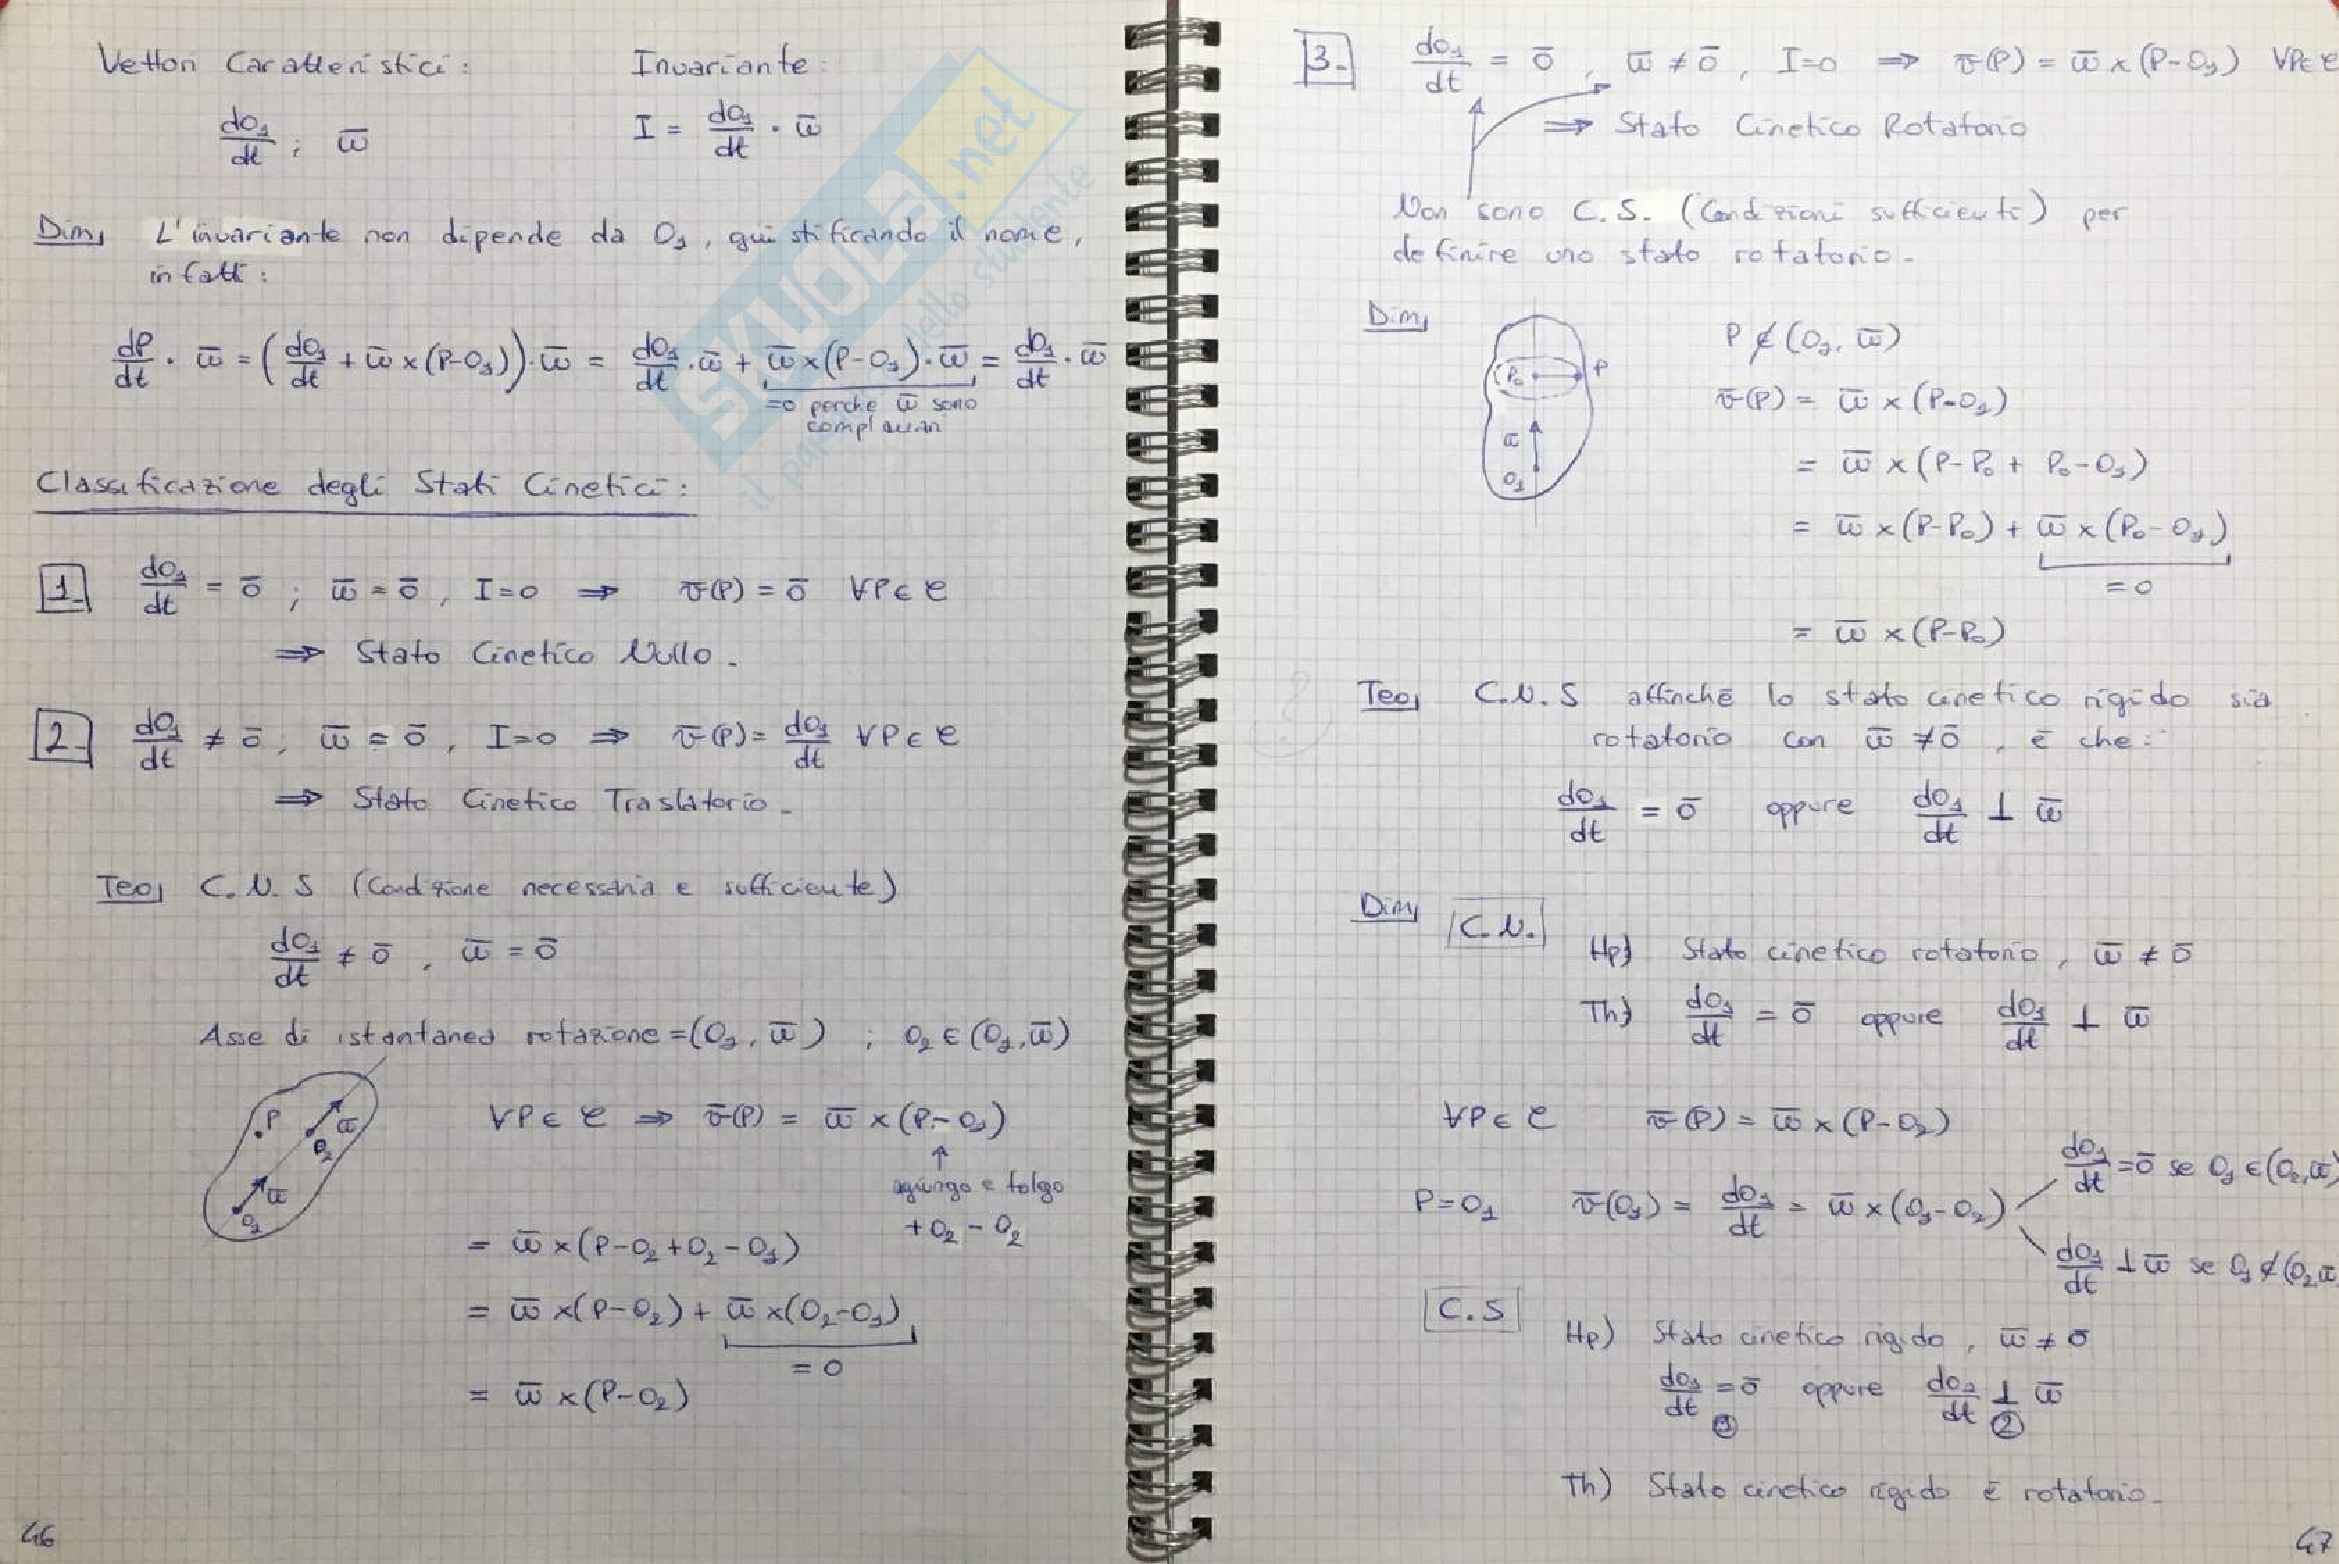 Vettori Caratteristici: Invariante:
dO₁/dt ; ω̄ I = dO₁/dt · ω̄
Dim, L'invariante non dipende da O₁, giustificando il nome,
infatti:
dP/dt · ω̄ = (dO₁/dt + ω̄ × (P-O₁)) · ω̄ = dO₁/dt · ω̄ + ω̄ × (P-O₁) · ω̄ = dO₁/dt · ω̄
=0 perche ω̄ sono
complanari
Classificazione degli Stati Cinetici:
1. dO₁/dt = ō ; ω̄ = ō , I=0 ⇒ v̄(P) = ō ∀P∈C
⇒ Stato Cinetico Nullo.
2. dO₁/dt ≠ ō ; ω̄ = ō , I=0 ⇒ v̄(P) = dO₁/dt ∀P∈C
⇒ Stato Cinetico Traslatorio.
Teo, C.N.S (Condizione necessaria e sufficiente)
dO₁/dt ≠ ō , ω̄ = ō
Asse di istantanea rotazione = (O₁, ω̄) ; O₂ ∈ (O₁, ω̄)
P ω̄ O₂ ω̄ O₂
∀P∈C ⇒ v̄(P) = ω̄ × (P-O₁)
↑
agiungo e tolgo
+O₂ - O₂
= ω̄ × (P-O₂+O₂-O₁)
= ω̄ × (P-O₂) + ω̄ × (O₂-O₁)
= 0
= ω̄ × (P-O₂)
46
3. dO₁/dt = ō , ω̄ ≠ ō , I=0 ⇒ v̄(P) = ω̄ × (P-O₁) ∀P∈C
⇒ Stato Cinetico Rotatorio
Non sono C.S. (Condizioni sufficienti) per
definire uno stato rotatorio.
Dim,
P₀ P ω̄ O₁
P ∉ (O₁, ω̄)
v̄(P) = ω̄ × (P-O₁)
= ω̄ × (P-P₀ + P₀-O₁)
= ω̄ × (P-P₀) + ω̄ × (P₀-O₁)
= 0
= ω̄ × (P-P₀)
Teo, C.N.S affinchè lo stato cinetico rigido sia
rotatorio con ω̄ ≠ ō , è che:
dO₁/dt = ō oppure dO₁/dt ⊥ ω̄
Dim, C.N.
Hp) Stato cinetico rotatorio, ω̄ ≠ ō
Th) dO₁/dt = ō oppure dO₁/dt ⊥ ω̄
∀P∈C v̄(P) = ω̄ × (P-O₂)
P=O₁ v̄(O₁) = dO₁/dt = ω̄ × (O₁-O₂)
dO₁/dt = ō se O₁ ∈ (O₂, ω̄)
dO₁/dt ⊥ ω̄ se O₁ ∉ (O₂, ω̄
C.S
Hp) Stato cinetico rigido, ω̄ ≠ ō
dO₁/dt = ō oppure dO₁/dt ⊥ ω̄
① ②
Th) Stato cinetico rigido è rotatorio.
47
SKUOLA.net
dello studente